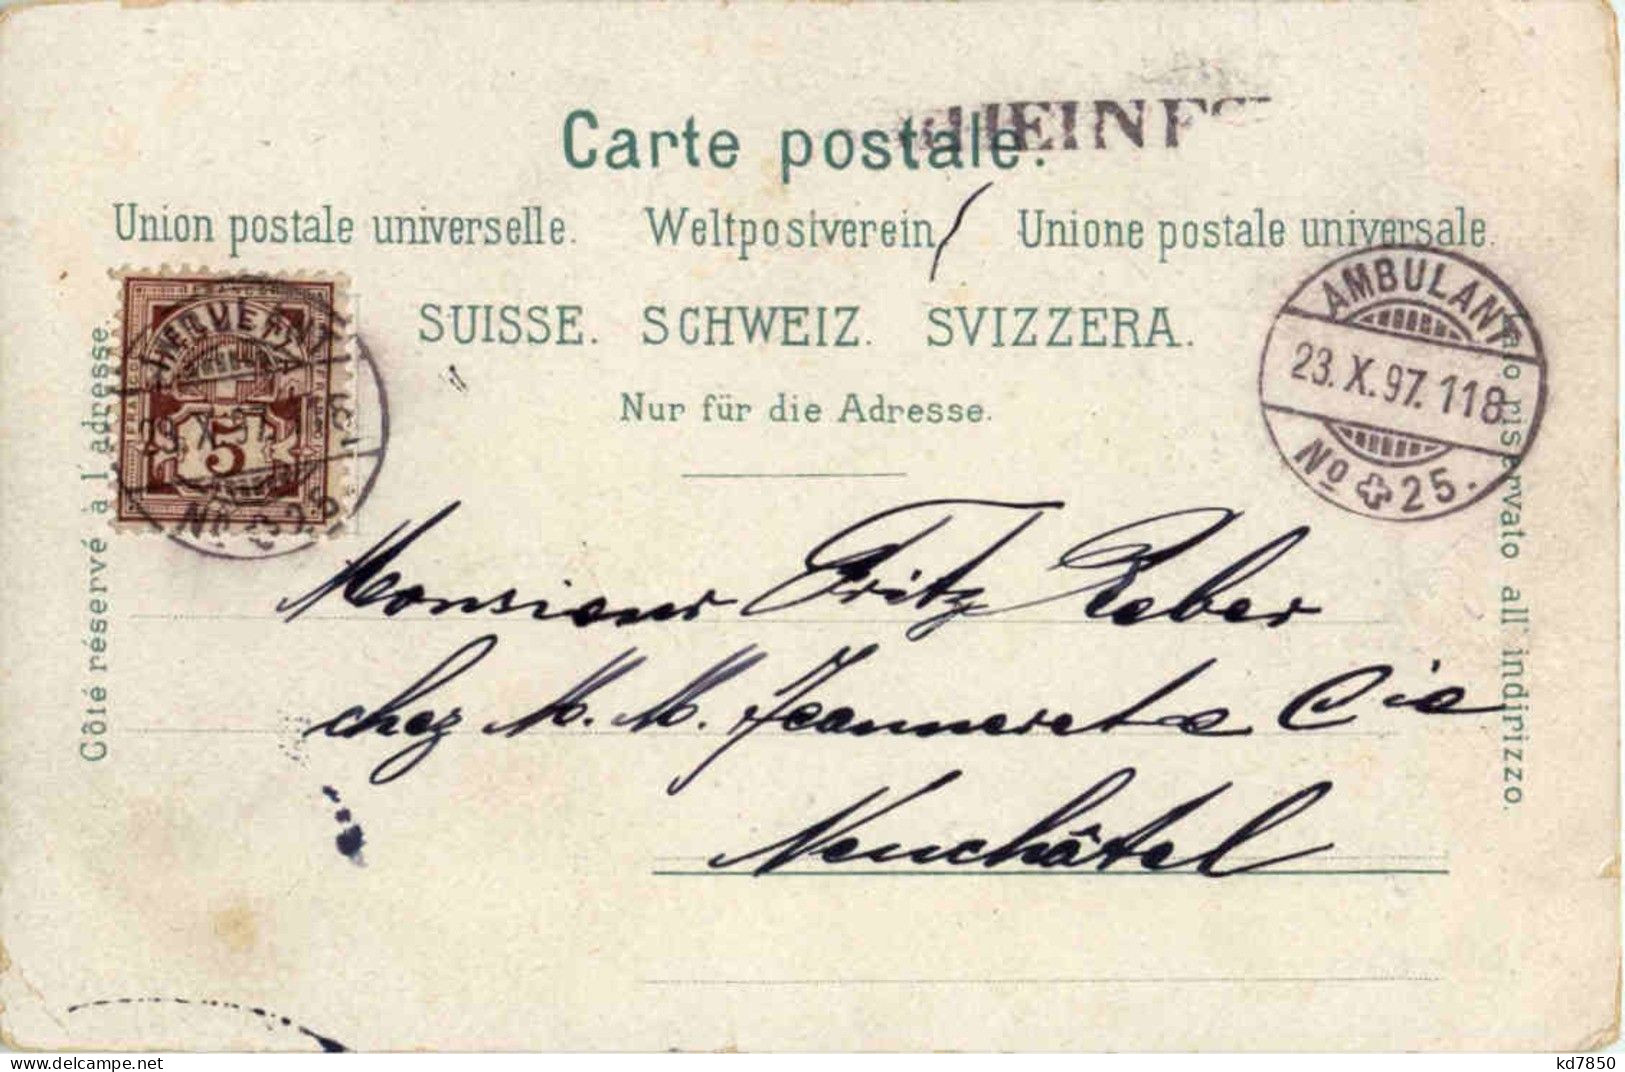 Carte postale.
Union postale universelle. Weltpostverein Unione postale universale
SUISSE. SCHWEIZ. SVIZZERA.
Nur für die Adresse.
Côté réservé à l'adresse.
Lato riservato all' indirizzo.
HELVETIA
5
AMBULANT
23. X. 97. 118
No 25.
Monsieur Fritz Reber
chez M. M. Jeanneret & Cie
Neuchâtel
www.delcampe.net
kd7850